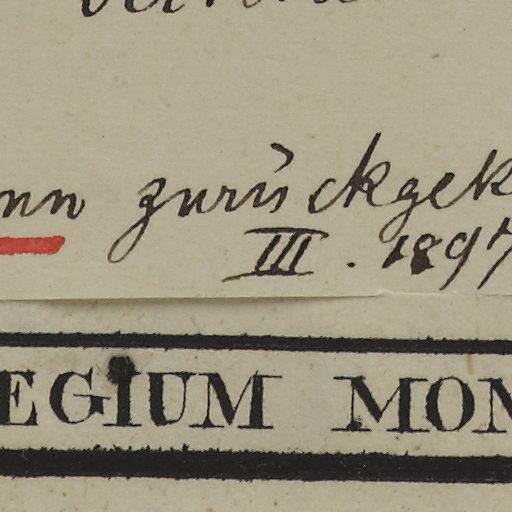 nn zurückgek
III. 1897
EGIUM MON